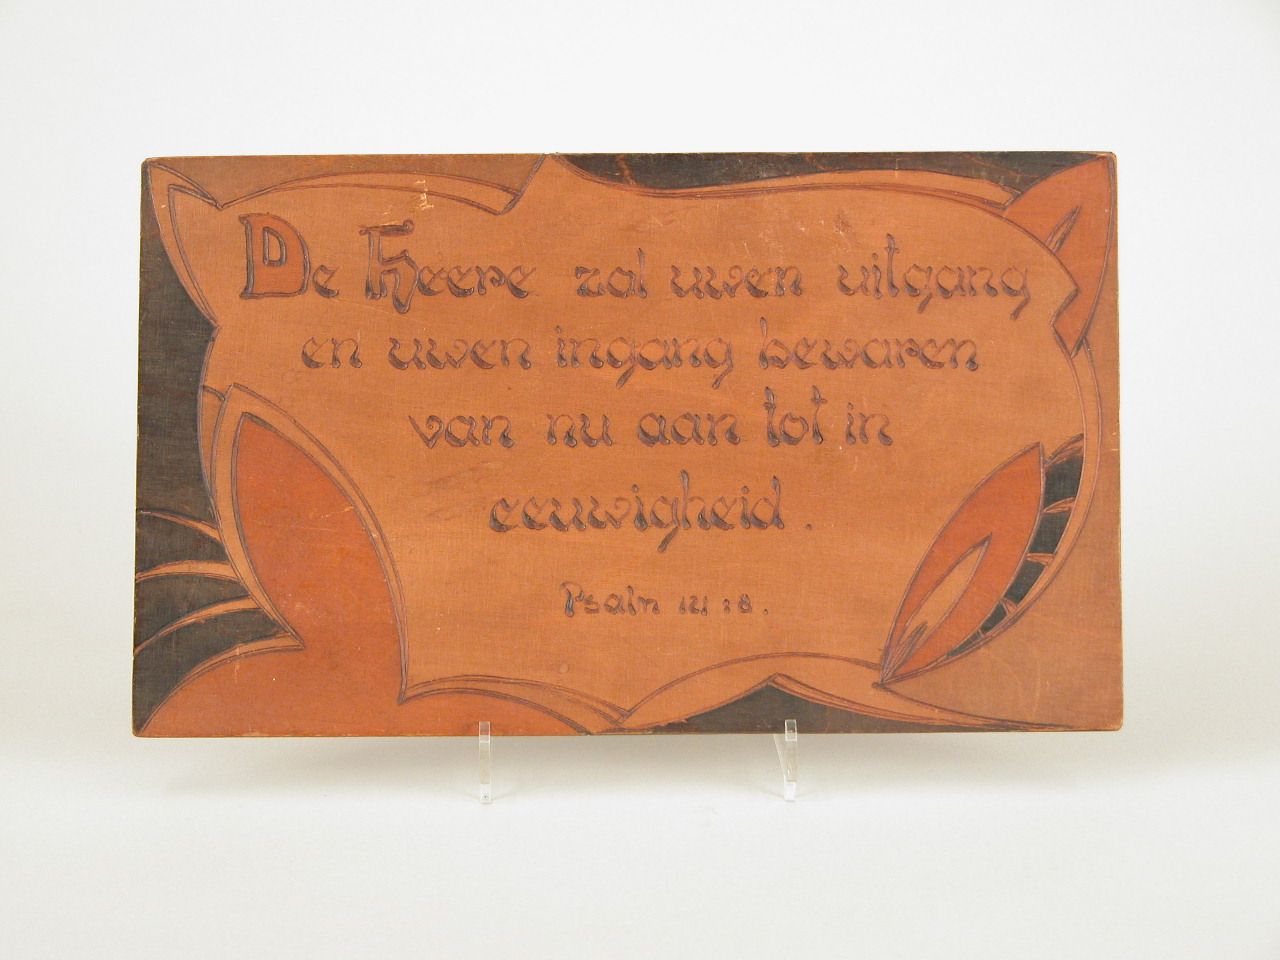 De Heere zal uwen uitgang
en uwen ingang bewaren
van nu aan tot in
eeuwigheid.
Psalm 121:8.